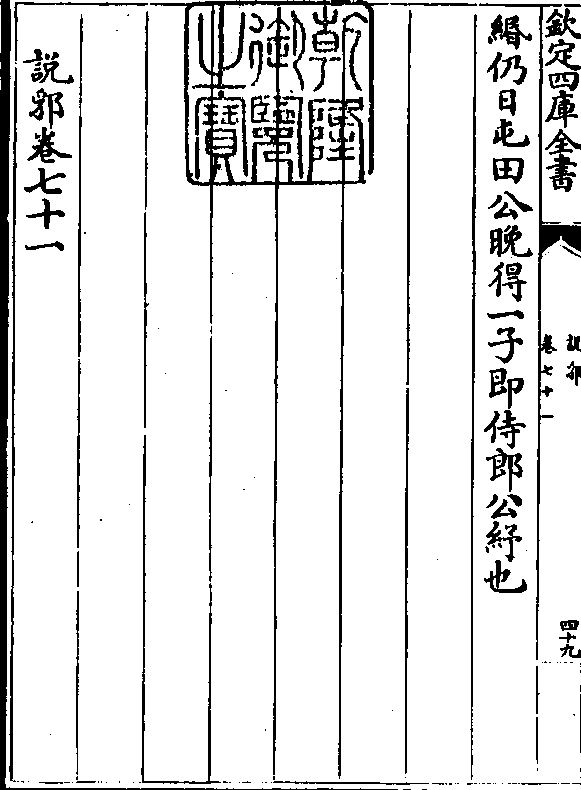 欽定四庫全書
說郛
卷七十一
四十九
緡仍日屯田公晚得一子即侍郎公紓也
乾隆
御覽
之寶
說郛卷七十一